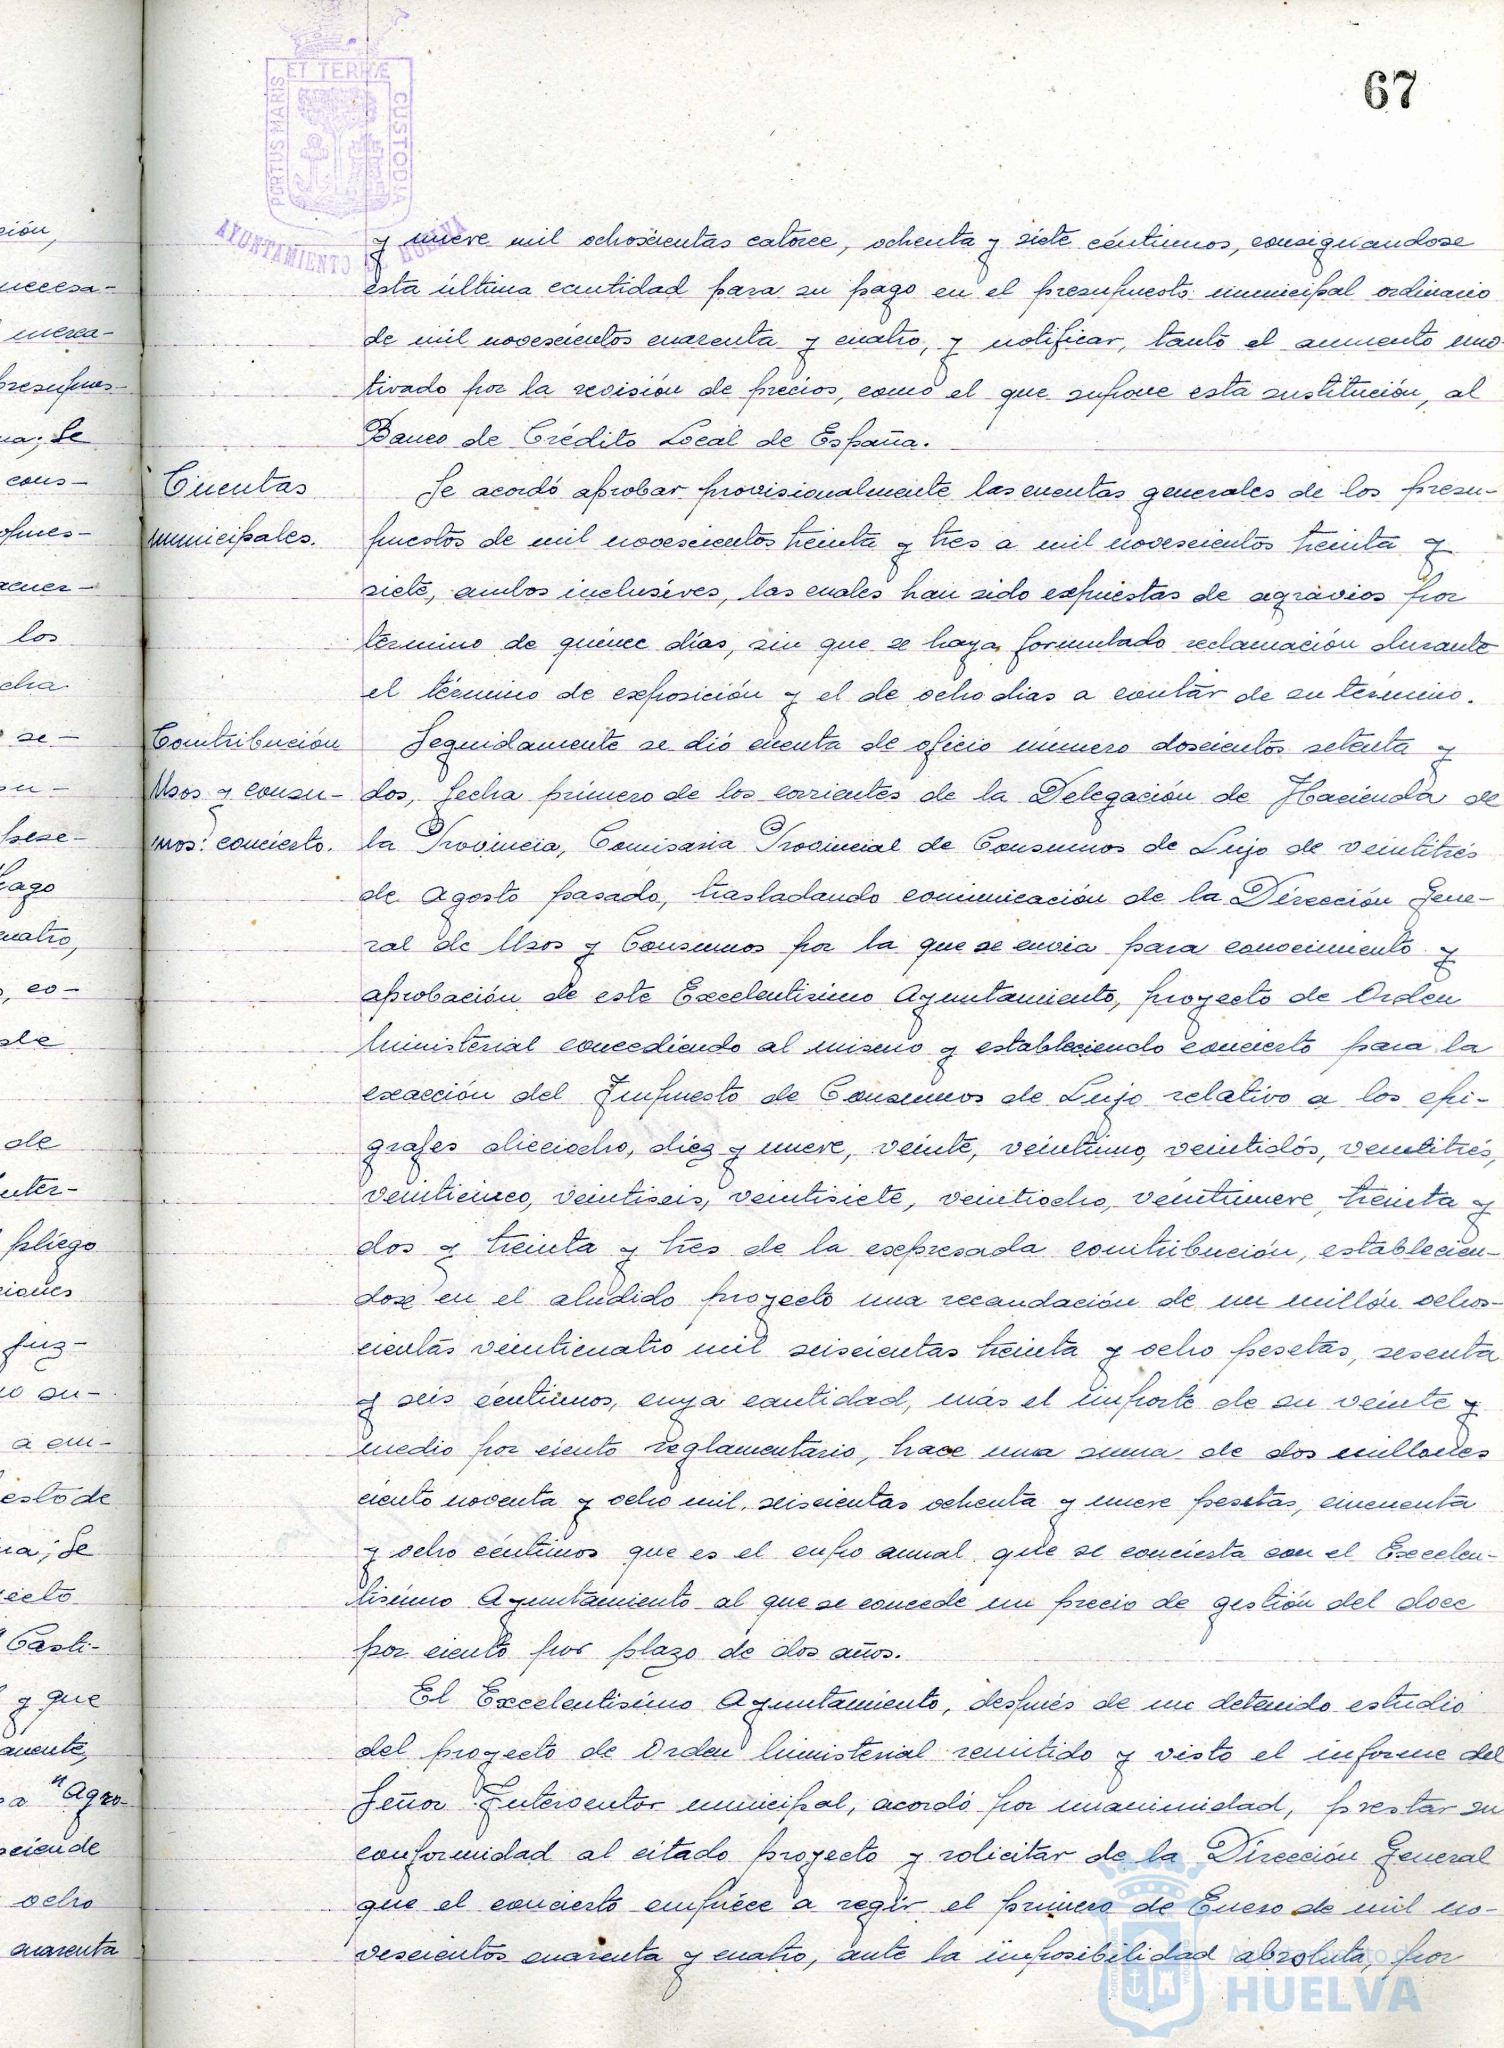 67
PORTUS MARIS ET TERRÆ CUSTODIA
AYUNTAMIENTO DE HUELVA
y nueve mil ochoscientas catorce, ochenta y siete céntimos, consignandose
esta última cantidad para su pago en el presupuesto municipal ordinario
de mil novescientos cuarenta y cuatro, y notificar, tanto el aumento mo-
tivado por la revisión de precios, como el que supone esta sustitución, al
Banco de Crédito Local de España.
Cuentas
municipales.
Se acordó aprobar provisionalmente las cuentas generales de los presu-
puestos de mil novescientos treinta y tres a mil novescientos treinta y
siete, ambos inclusives, las cuales han sido expuestas de agravios por
término de quince días, sin que se haya formulado reclamación durante
el término de exposición y el de ocho dias a contar de su término.
Contribución
Usos y consu-
mos: concierto.
Seguidamente se dió cuenta de oficio número doscientos setenta y
dos, fecha primero de los corrientes de la Delegación de Hacienda de
la Provincia, Comisaria Provincial de Consumos de Lujo de veintitrés
de Agosto pasado, trasladando comunicación de la Dirección Gene-
ral de Usos y Consumos por la que se envia para conocimiento y
aprobación de este Excelentisimo Ayuntamiento, proyecto de Orden
Ministerial concediendo al mismo y estableciendo concierto para la
exacción del Impuesto de Consumos de Lujo relativo a los epi-
grafes dieciocho, diez y nueve, veinte, veintiuno, veintidós, veintitrés,
veinticinco, veintiseis, veintisiete, veintiocho, veintinueve, treinta y
dos y treinta y tres de la expresada contribución, establecien-
dose en el aludido proyecto una recaudación de un millón ochos-
cientas veinticuatro mil seiscientas treinta y ocho pesetas, sesenta
y seis céntimos, cuya cantidad, más el importe de su veinte y
medio por ciento reglamentario, hace una suma de dos millones
ciento noventa y ocho mil, seiscientas ochenta y nueve pesetas, cincuenta
y ocho céntimos que es el cupo annual que se concierta con el Excelen-
tisimo Ayuntamiento al que se concede un precio de gestión del doce
por ciento por plazo de dos años.
El Excelentisimo Ayuntamiento, después de un detenido estudio
del proyecto de Orden Ministerial remitido y visto el informe del
Señor Interventor municipal, acordó por unanimidad, prestar su
conformidad al citado proyecto y solicitar de la Dirección General
que el concierto empiece a regir el primero de Enero de mil no-
vescientos cuarenta y cuatro, ante la imposibilidad absoluta, por
Ayuntamiento de
HUELVA